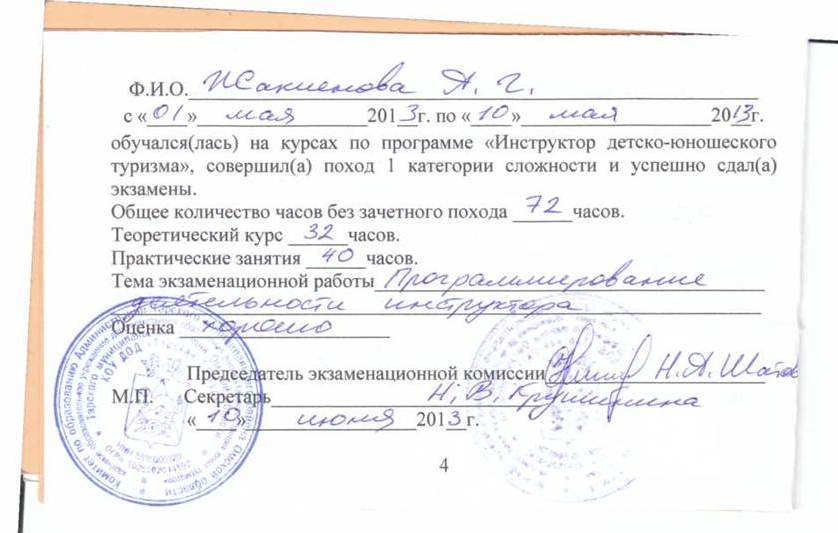 Ф.И.О. Жакиенова А. Г.
с «01» мая 2013г. по «10» мая 2013г.
обучался(лась) на курсах по программе «Инструктор детско-юношеского
туризма», совершил(а) поход 1 категории сложности и успешно сдал(а)
экзамены.
Общее количество часов без зачетного похода 72 часов.
Теоретический курс 32 часов.
Практические занятия 40 часов.
Тема экзаменационной работы Программирование
деятельности инструктора
Оценка хорошо
Председатель экзаменационной комиссии Н.А.
М.П. Секретарь Н.В.
«10» июня 2013г.
4
Комитет по образованию Администрации
Омской области
КОУ ДОД